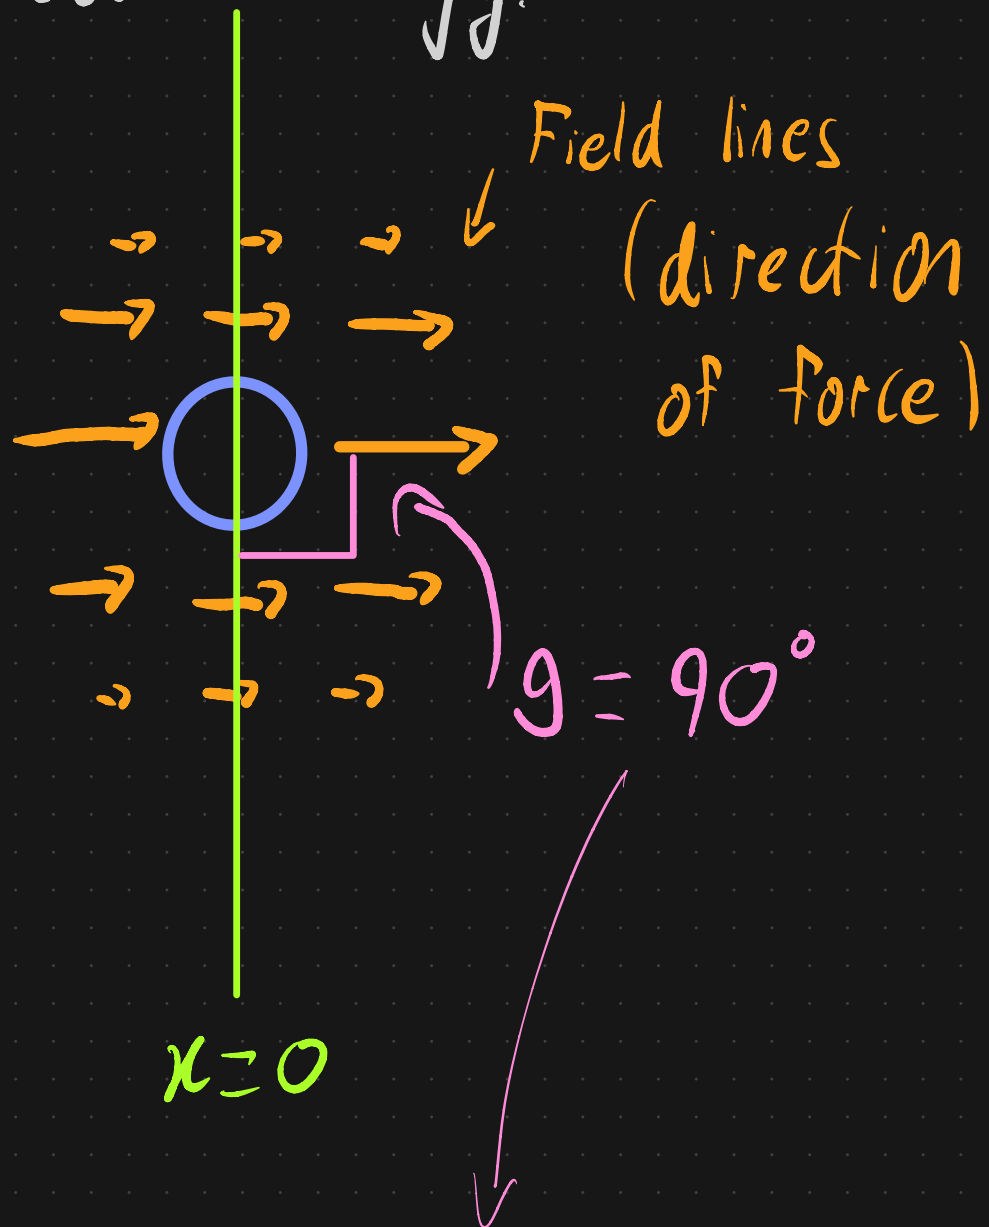 Field lines
(direction
of force)
g = 90°
x = 0